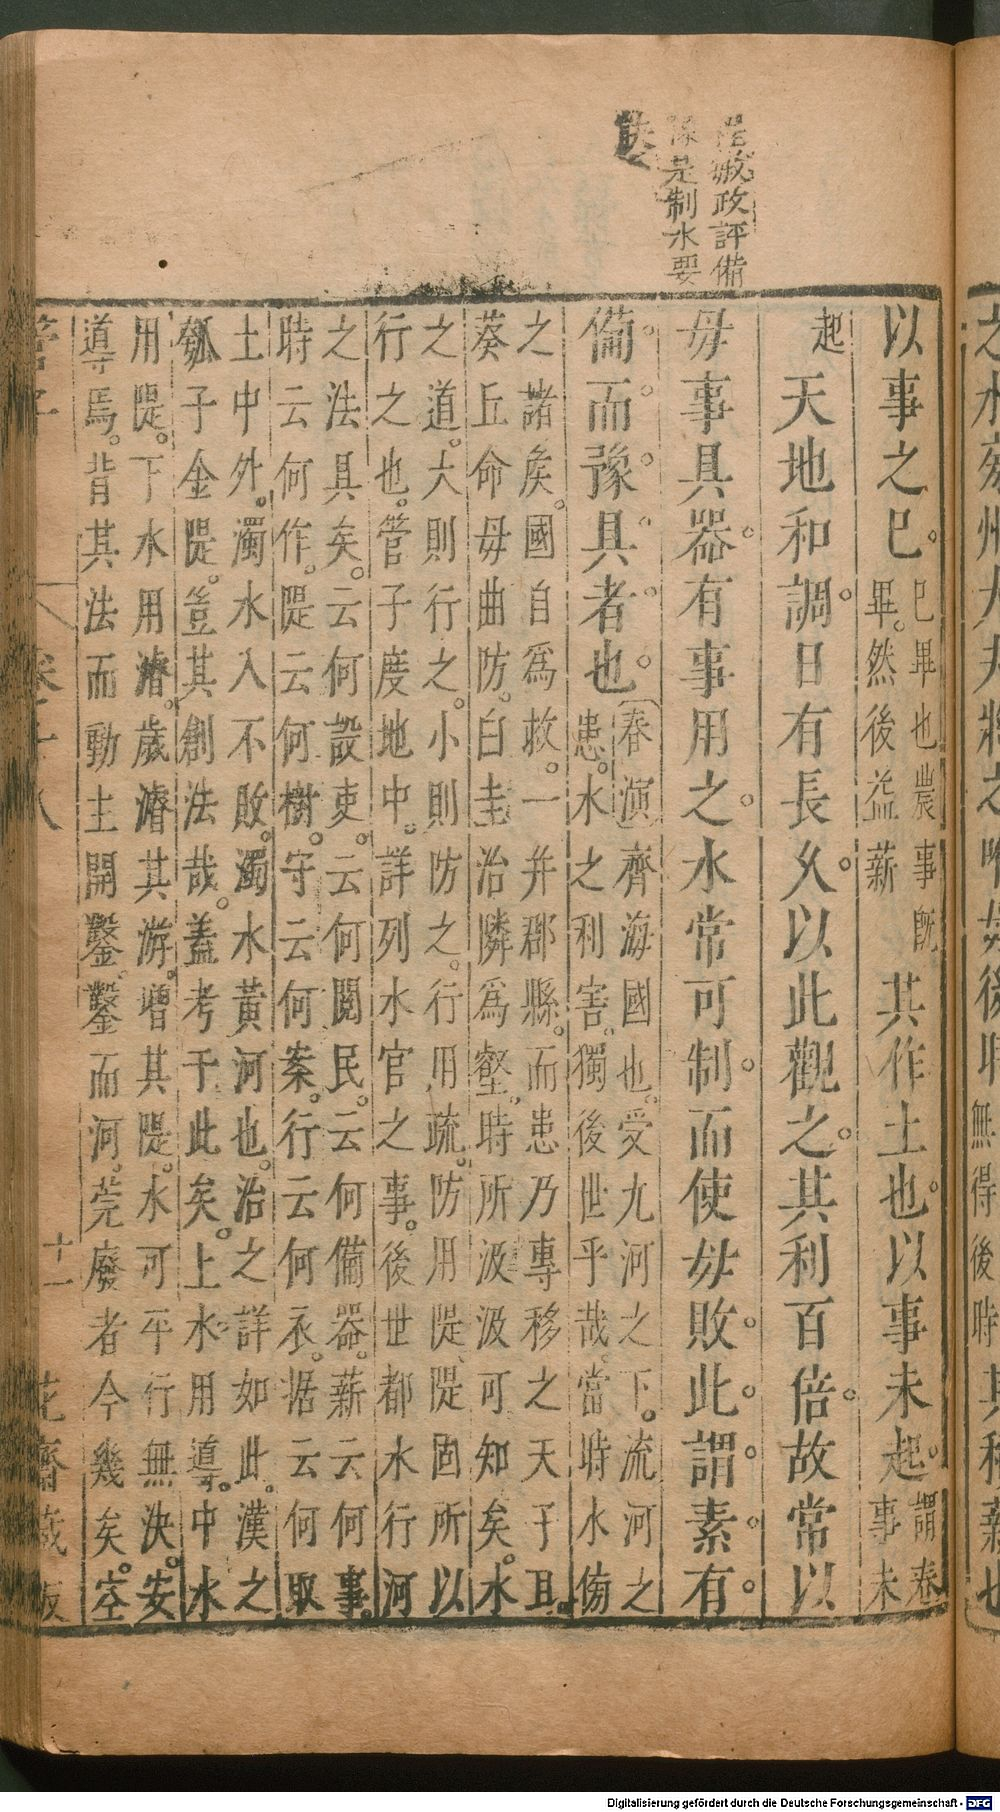 敏政評備
是制水要
以事之已。已畢也農事旣畢。然後益薪其作土也。以事未起。謂春事未
起天地和調。日有長乆。以此觀之。其利百倍。故常以
毋事具器。有事用之。水常可制。而使毋敗。此謂素有
備而豫具者也。春演齊海國也。受九河之下。流河之
患。水之利害。獨後世乎哉。當時水俻
之諸矦。國自爲救。一并郡縣。而患乃專移之天子耳。
葵丘命毋曲防。白圭治隣爲壑。時所汲汲可知矣。水
之道。大則行之。小則防之。行用疏。防用隄、隄固所以
行之也。管子度地中。詳列水官之事。後世都水行河
之法具矣。云何設吏。云何閱民。云何備器。薪云何事。
時云何作。隄云何樹。守云何案。行云何衣。据云何取
土中外。濁水入不敗。濁水黃河也。治之詳如此。漢之
瓠子金隄。豈其創法哉。葢考于此矣。上水用導。中水
用隄。下水用濬。歲濬其游。增其隄。水可平行無決。安
導焉。背其法而動土開鑿。鑿而河。莞廢者今幾矣。空
管子 卷十八 十一 花齋藏板
之水
大夫將之
後時無得後時其
Digitalisierung gefördert durch die Deutsche Forschungsgemeinschaft - DFG